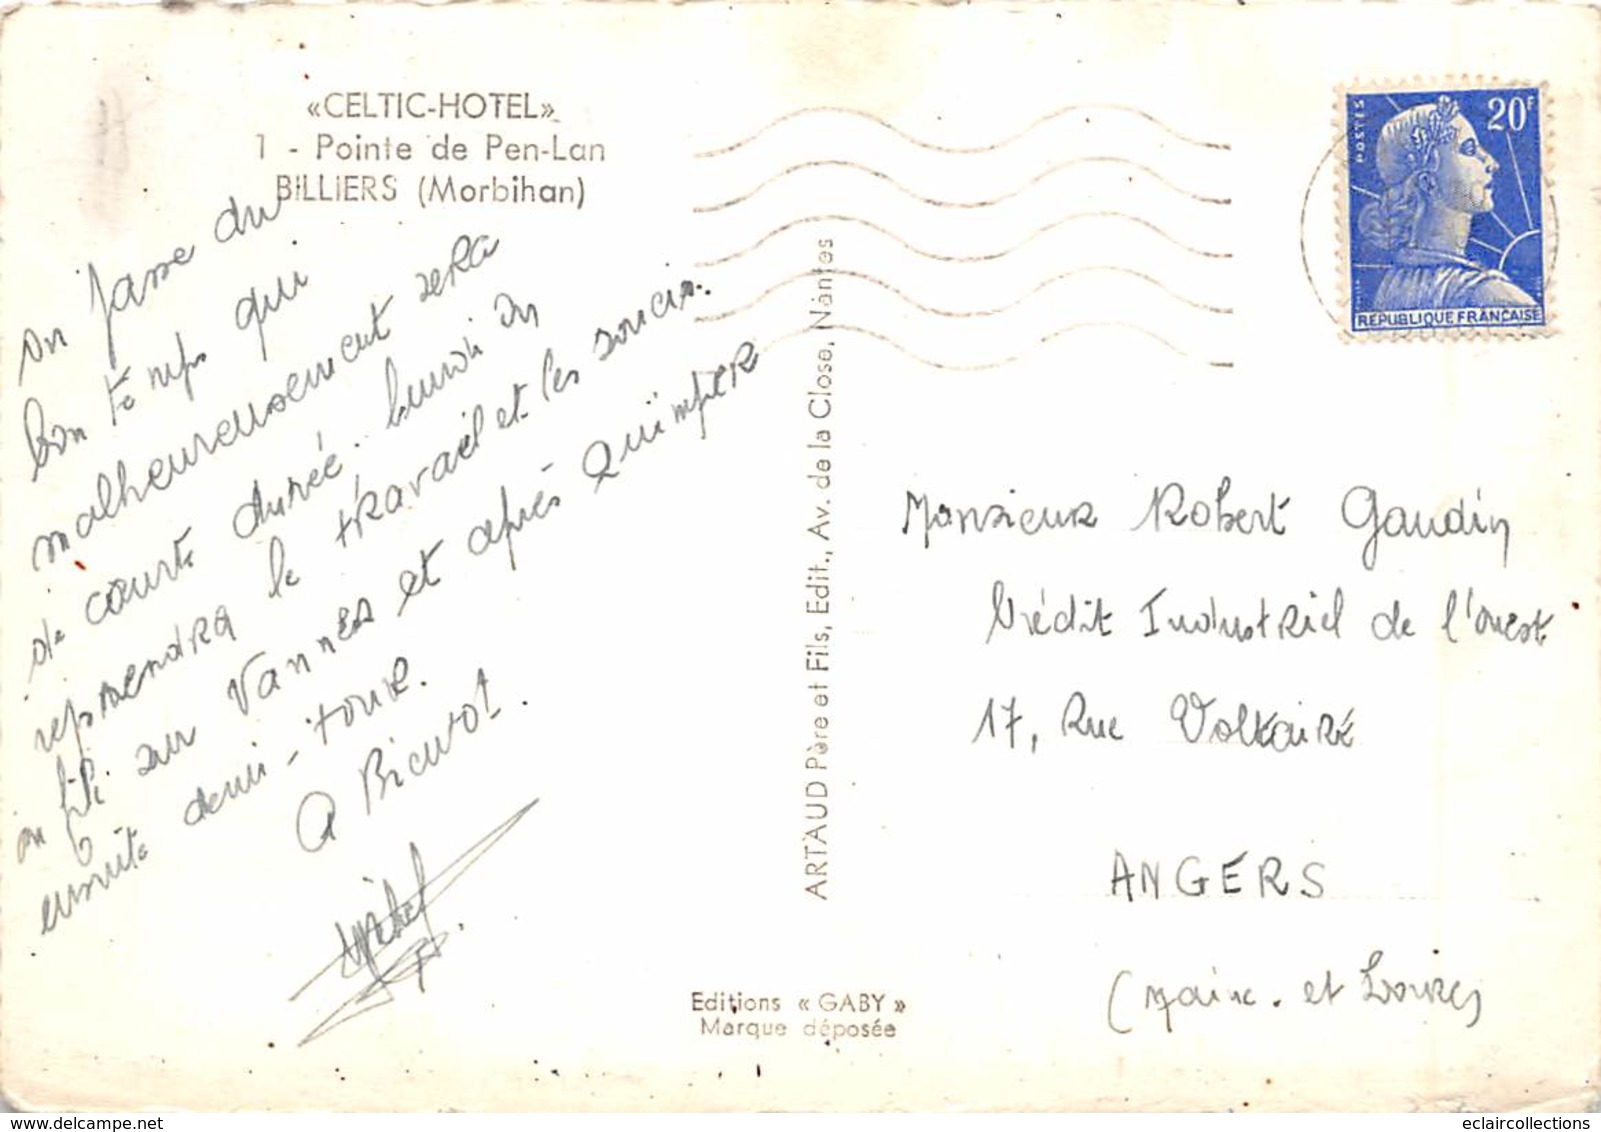 «CELTIC-HOTEL»
1 - Pointe de Pen-Lan
BILLIERS (Morbihan)
on passe du
bon temps qui
malheureusement sera
de courte durée. Lundi on
reprendra le travail et les soucis.
on file sur Vannes et après Quimper
ensuite demi-tour.
A Bientôt.
Michel
ARTAUD Père et Fils, Edit., Av. de la Close, Nantes
Editions « GABY »
Marque déposée
POSTES
20F
REPUBLIQUE FRANÇAISE
Monsieur Robert Gaudin
Crédit Industriel de l'ouest
17, Rue Voltaire
ANGERS
(Maine. et Loire)
eclaircollections
delcampe.net